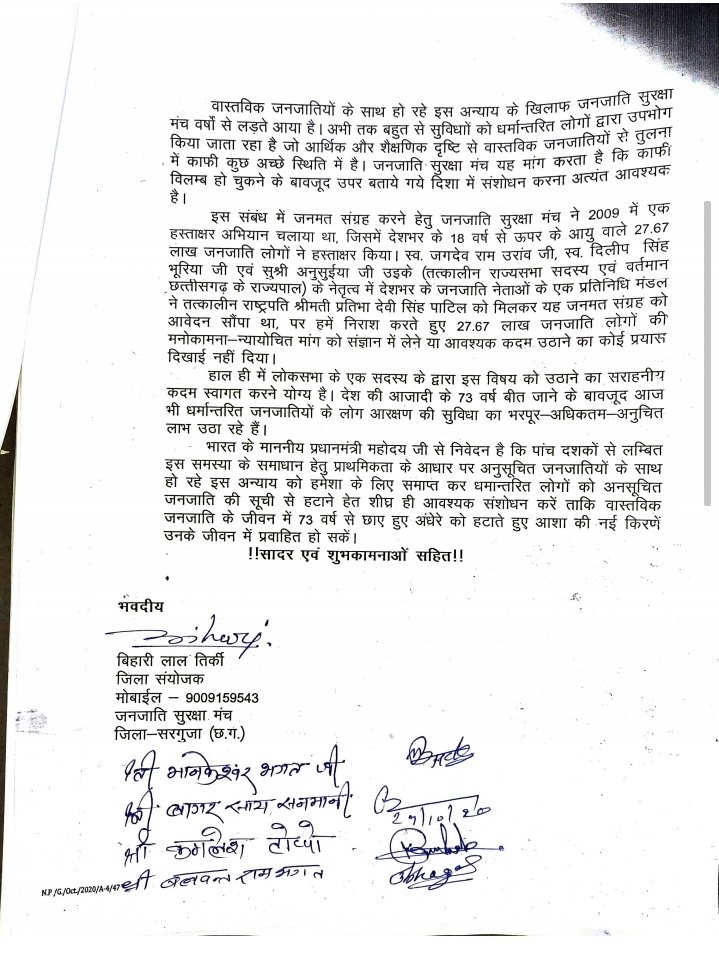 वास्तविक जनजातियों के साथ हो रहे इस अन्याय के खिलाफ जनजाति सुरक्षा
मंच वर्षो से लड़ते आया है। अभी तक बहुत से सुविधाओं को धर्मान्तरित लोगों द्वारा उपभोग
किया जाता रहा है जो आर्थिक और शैक्षणिक दृष्टि से वास्तविक जनजातियों से तुलना
में काफी कुछ अच्छे स्थिति में है। जनजाति सुरक्षा मंच यह मांग करता है कि काफी
विलम्ब हो चुकने के बावजूद उपर बताये गये दिशा में संशोधन करना अत्यंत आवश्यक
है।
इस संबंध में जनमत संग्रह करने हेतु जनजाति सुरक्षा मंच ने 2009 में एक
हस्ताक्षर अभियान चलाया था, जिसमें देशभर के 18 वर्ष से ऊपर के आयु वाले 27.67
लाख जनजाति लोगों ने हस्ताक्षर किया। स्व. जगदेव राम उरांव जी, स्व. दिलीप सिंह
भूरिया जी एवं सुश्री अनुसुईया जी उइके (तत्कालीन राज्यसभा सदस्य एवं वर्तमान
छत्तीसगढ़ के राज्यपाल) के नेतृत्व में देशभर के जनजाति नेताओं के एक प्रतिनिधि मंडल
ने तत्कालीन राष्ट्रपति श्रीमती प्रतिभा देवी सिंह पाटिल को मिलकर यह जनमत संग्रह को
आवेदन सौंपा था, पर हमें निराश करते हुए 27.67 लाख जनजाति लोगों की
मनोकामना–न्यायोचित मांग को संज्ञान में लेने या आवश्यक कदम उठाने का कोई प्रयास
दिखाई नहीं दिया।
हाल ही में लोकसभा के एक सदस्य के द्वारा इस विषय को उठाने का सराहनीय
कदम स्वागत करने योग्य है। देश की आजादी के 73 वर्ष बीत जाने के बावजूद आज
भी धर्मान्तरित जनजातियों के लोग आरक्षण की सुविधा का भरपूर–अधिकतम–अनुचित
लाभ उठा रहे हैं।
भारत के माननीय प्रधानमंत्री महोदय जी से निवेदन है कि पांच दशकों से लम्बित
इस समस्या के समाधान हेतु प्राथमिकता के आधार पर अनुसूचित जनजातियों के साथ
हो रहे इस अन्याय को हमेशा के लिए समाप्त कर धमान्तरित लोगों को अनसूचित
जनजाति की सूची से हटाने हेत शीघ्र ही आवश्यक संशोधन करें ताकि वास्तविक
जनजाति के जीवन में 73 वर्ष से छाए हुए अंधेरे को हटाते हुए आशा की नई किरणें
उनके जीवन में प्रवाहित हो सकें।
!!सादर एवं शुभकामनाओं सहित!!
भवदीय
बिहारी लाल तिर्की
जिला संयोजक
मोबाईल – 9009159543
जनजाति सुरक्षा मंच
जिला–सरगुजा (छ.ग.)
श्री भानकेश्वर भगत जी
श्री साय
29/10/20
श्री कमलेश टोप्पो
N.P./G./Oct./2020/A-4/47 श्री बलवन्त राम भगत